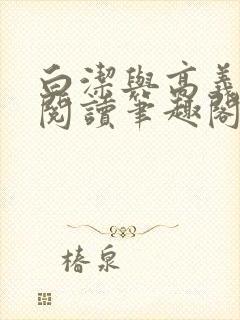 白潔與高義
閱讀筆趣閣
椿泉